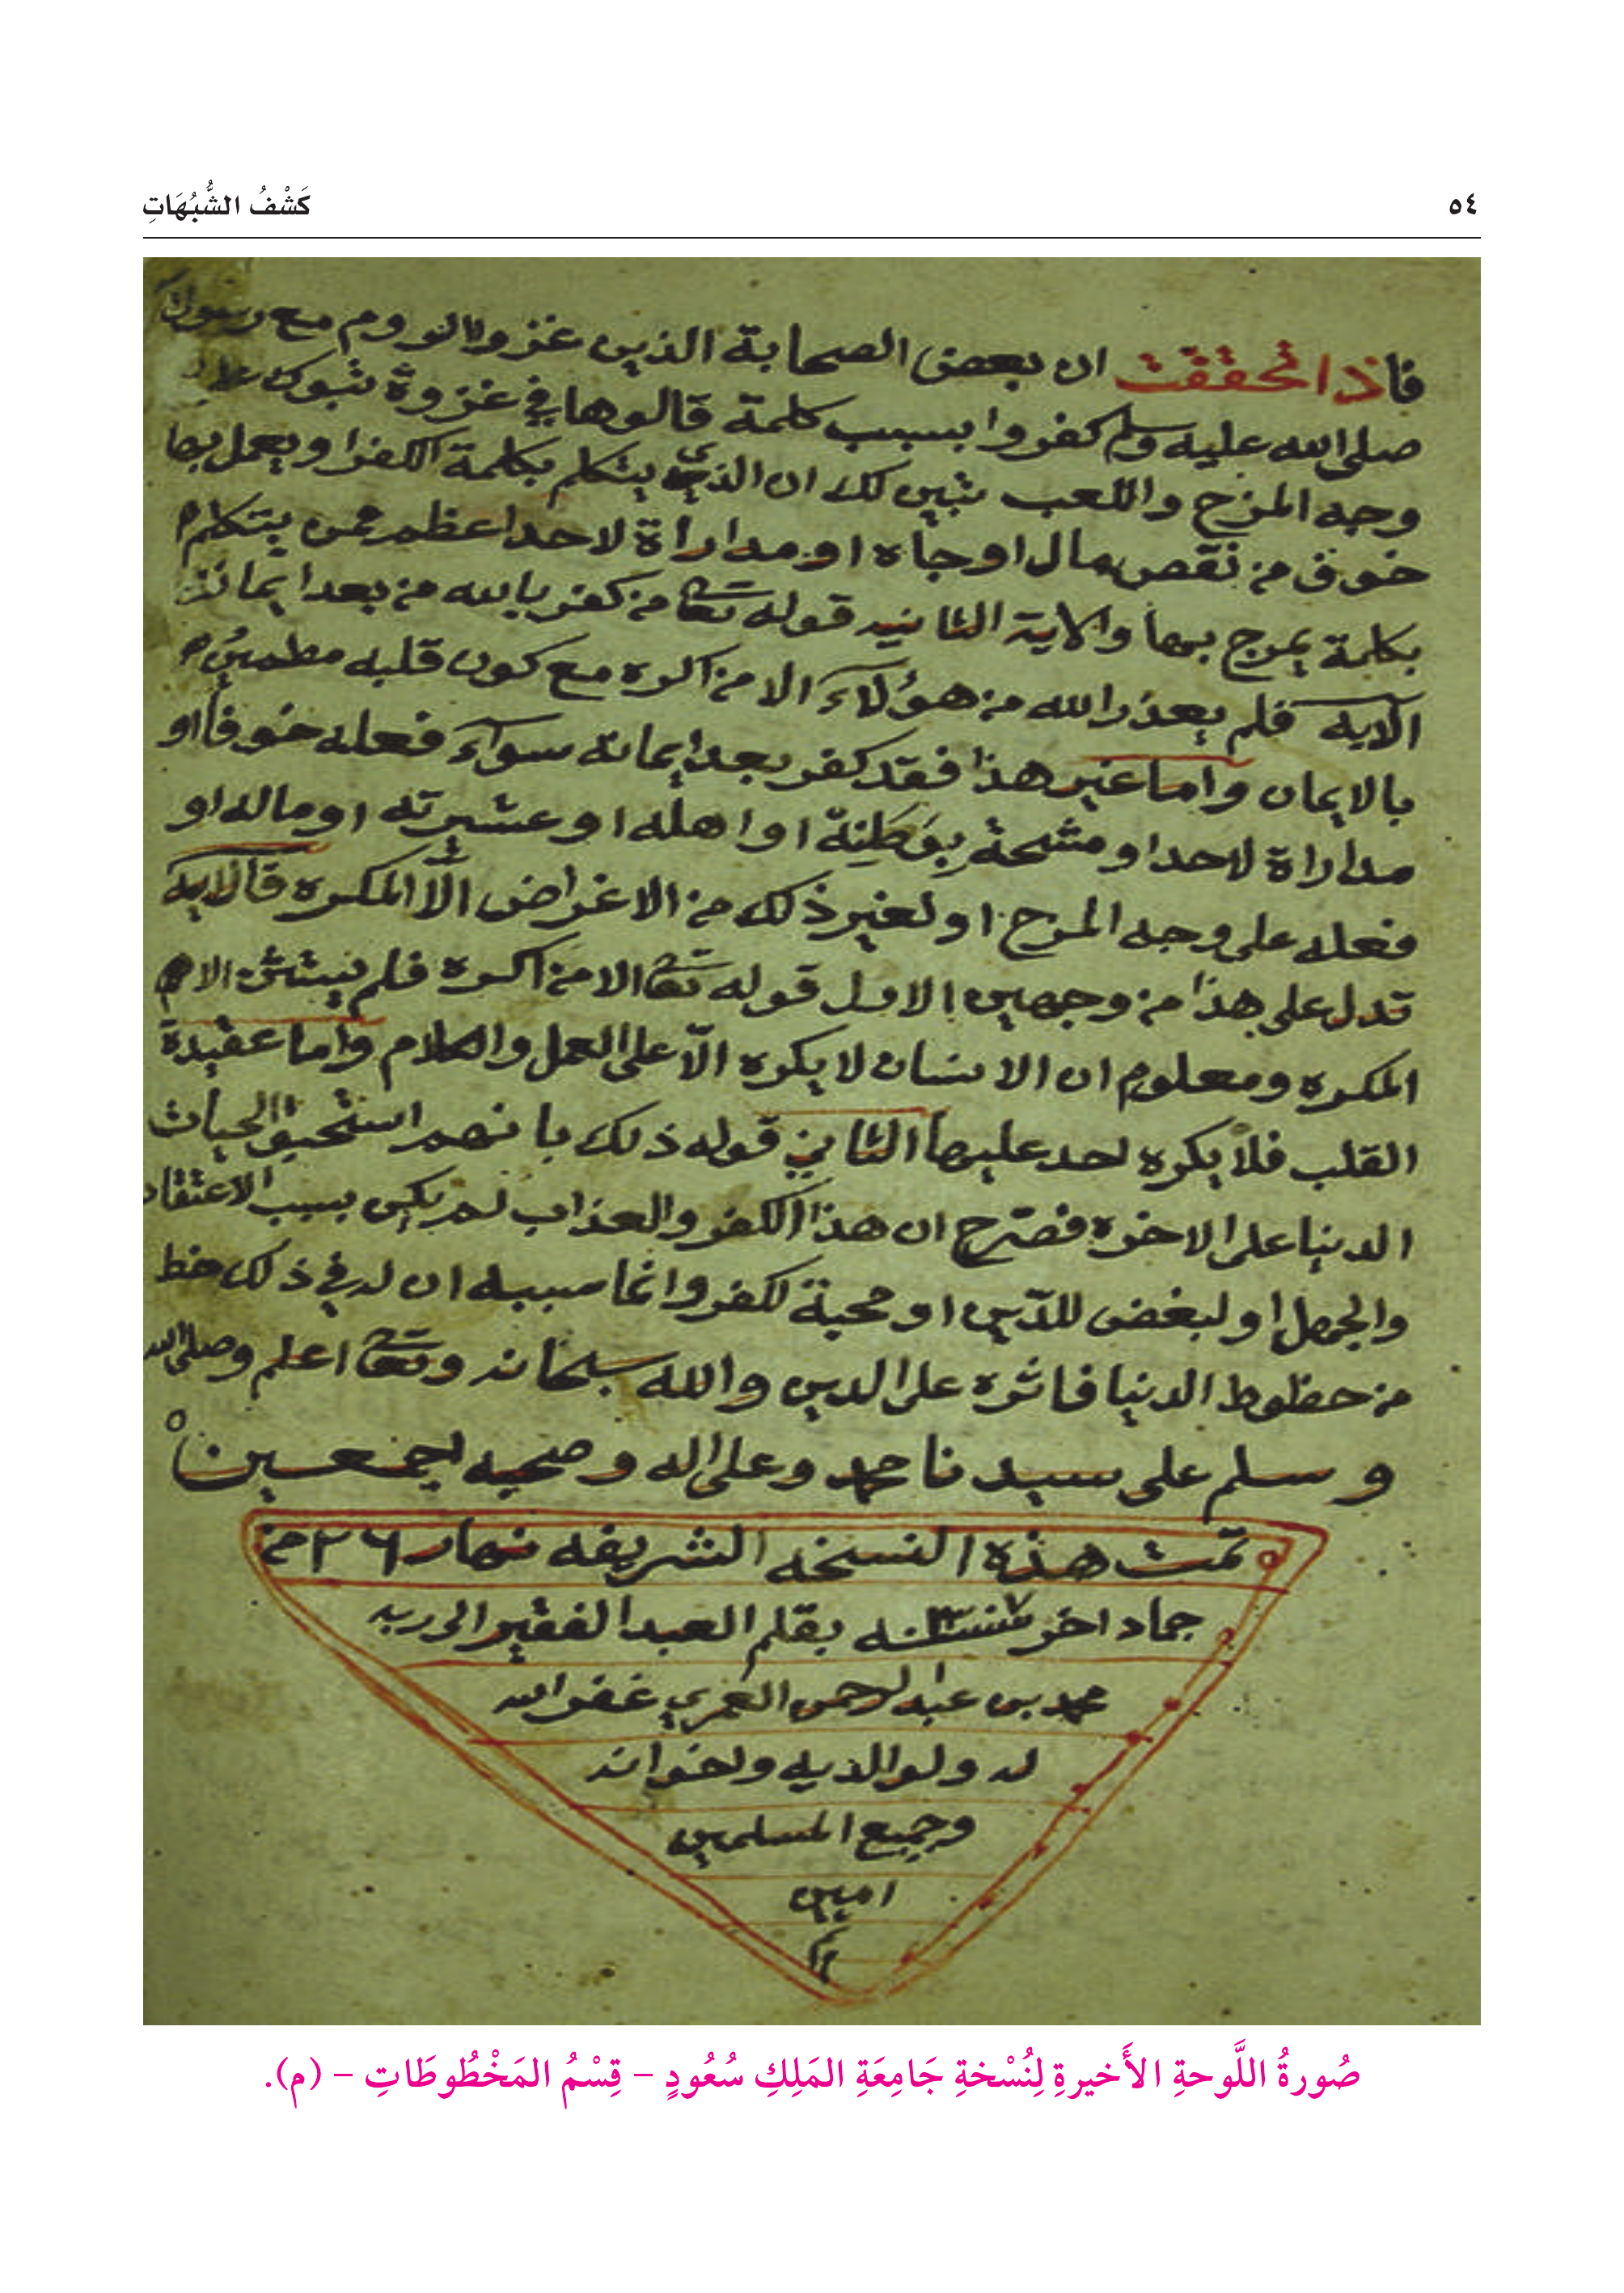 ٥٤
كَشْفُ الشُّبُهَاتِ
فاذا تحققت ان بعض الصحابة الذين غزوا الروم مع رسول
صلى الله عليه وسلم كفروا بسبب كلمة قالوها في غزوة تبوك على
وجه المزح واللعب تبين لك ان الذي يتكلم بكلمة الكفر او يعمل بها
خوف من نقص مال او جاه او مداراة لاحد اعظم ممن يتكلم
بكلمة يمزح بها والاية الثانيه قوله تعا من كفر بالله من بعد ايمانه
الايه فلم يعذر الله من هؤلاء الا من اكره مع كون قلبه مطمئن
بالايمان واما غير هذا فقد كفر بعد ايمانه سوآء فعله خوفا او
مداراة لاحد او مشحة بوطنه او اهله او عشيرته او ماله او
فعله على وجه المزح او لغير ذلك من الاغراض الّا المكره فالايه
تدل على هذا من وجهين الاول قوله تعا الا من اكره فلم يستثن الا
المكره ومعلوم ان الانسان لا يكره الّا على العمل والكلام واما عقيدة
القلب فلا يكره احد عليها الثاني قوله ذلك بانهم استحبو الحيات
الدنيا على الاخره فصرح ان هذا الكفر والعذاب لم يكن بسبب الاعتقاد
والجهل او لبغض للدين او محبة لكفر وانما سببه ان له في ذلك حظ
من حظوط الدنيا فاثره على الدين والله سبحانه وتعا اعلم وصلى الله
وسلم على سيدنا محمد وعلى اله وصحبه اجمعين
تمت هذه النسخه الشريفه نهار ٢٦ من
جماد اخر سنه بقلم العبد الفقير الى ربه
محمد بن عبد الرحمن العمري غفر الله
له ولوالديه ولخوانه
وجميع المسلمين
امين
م
صُورةُ اللَّوحةِ الأَخيرةِ لِنُسْخةِ جَامِعَةِ المَلِكِ سُعُودٍ – قِسْمُ المَخْطُوطَاتِ – (م).